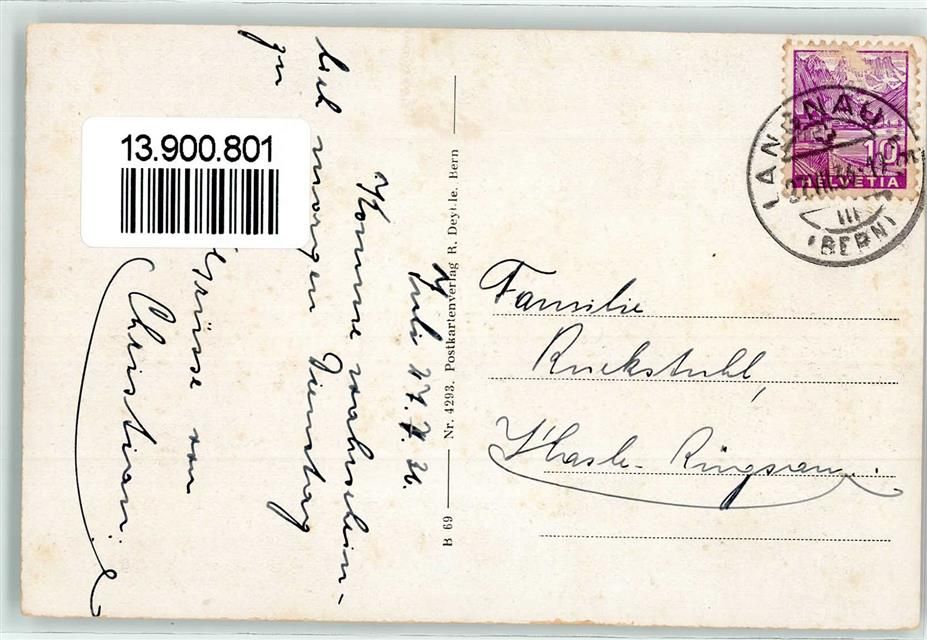 13.900.801
Komme wahrschein-
lich morgen Dienstag
zu
Grüsse von
Christian.
B 69 Nr. 4293. Postkartenverlag R. Deyhle. Bern
LANGNAU
(BERN)
10
HELVETIA
Familie
Ruckstuhl,
Hasle-